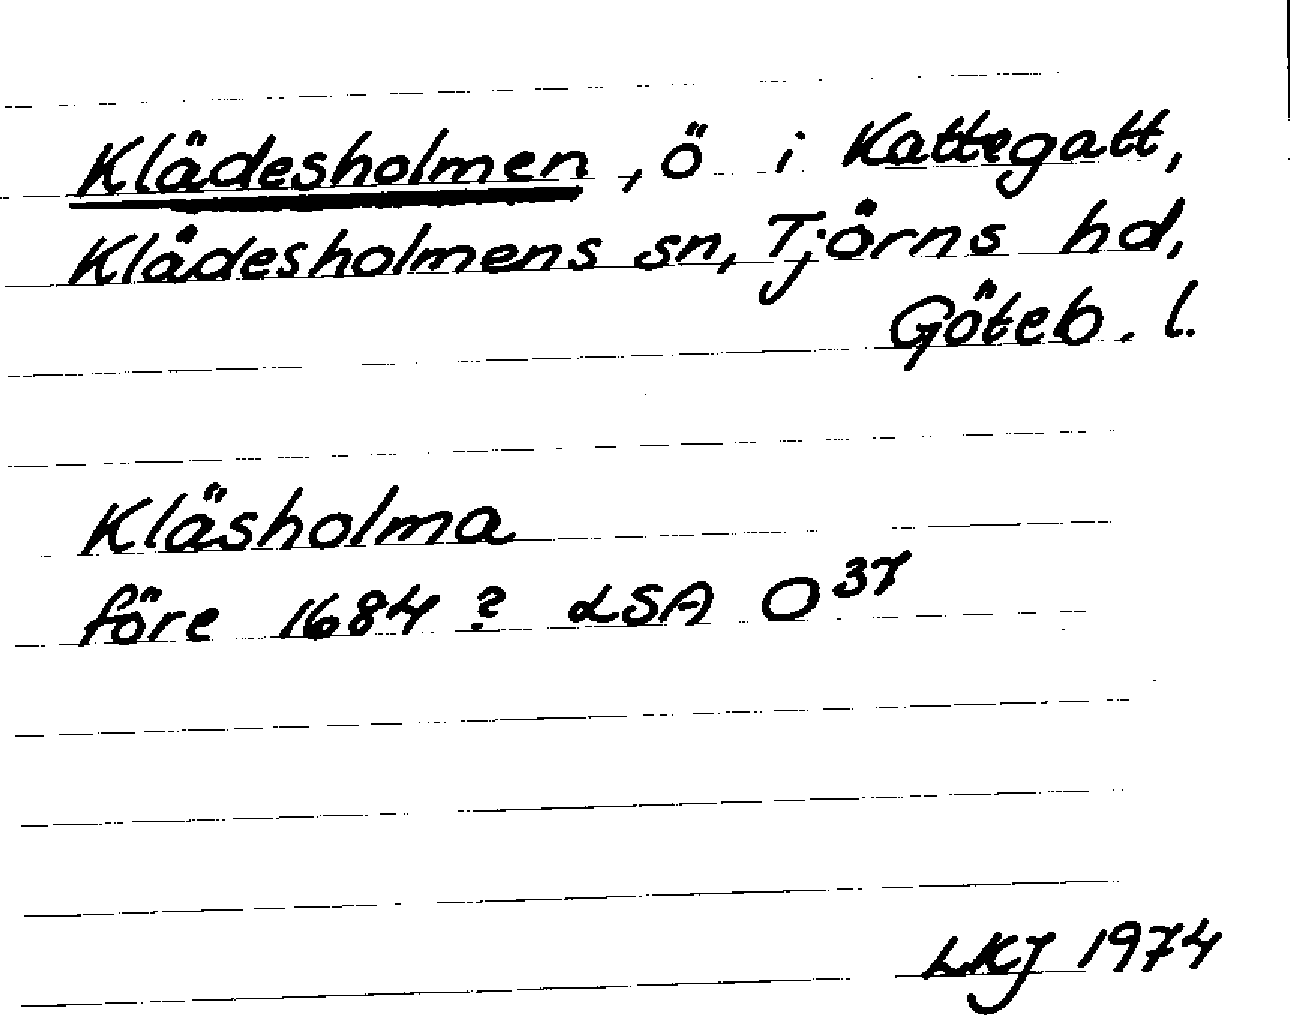 Klädesholmen, ö i Kattegatt,
Klädesholmens sn, Tjörns hd,
Göteb. l.
Kläsholma
före 1684? LSA O³⁷
LKJ 1974